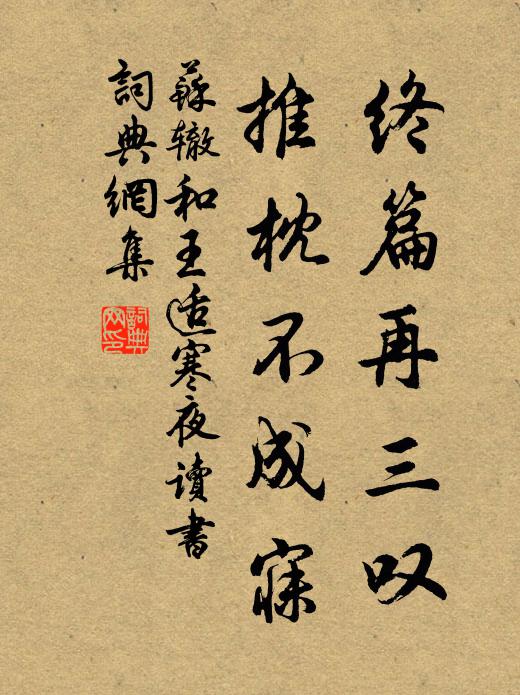 终篇再三叹
推枕不成寐
蘇辙和王适寒夜讀書
詞典網集
詞典
网印